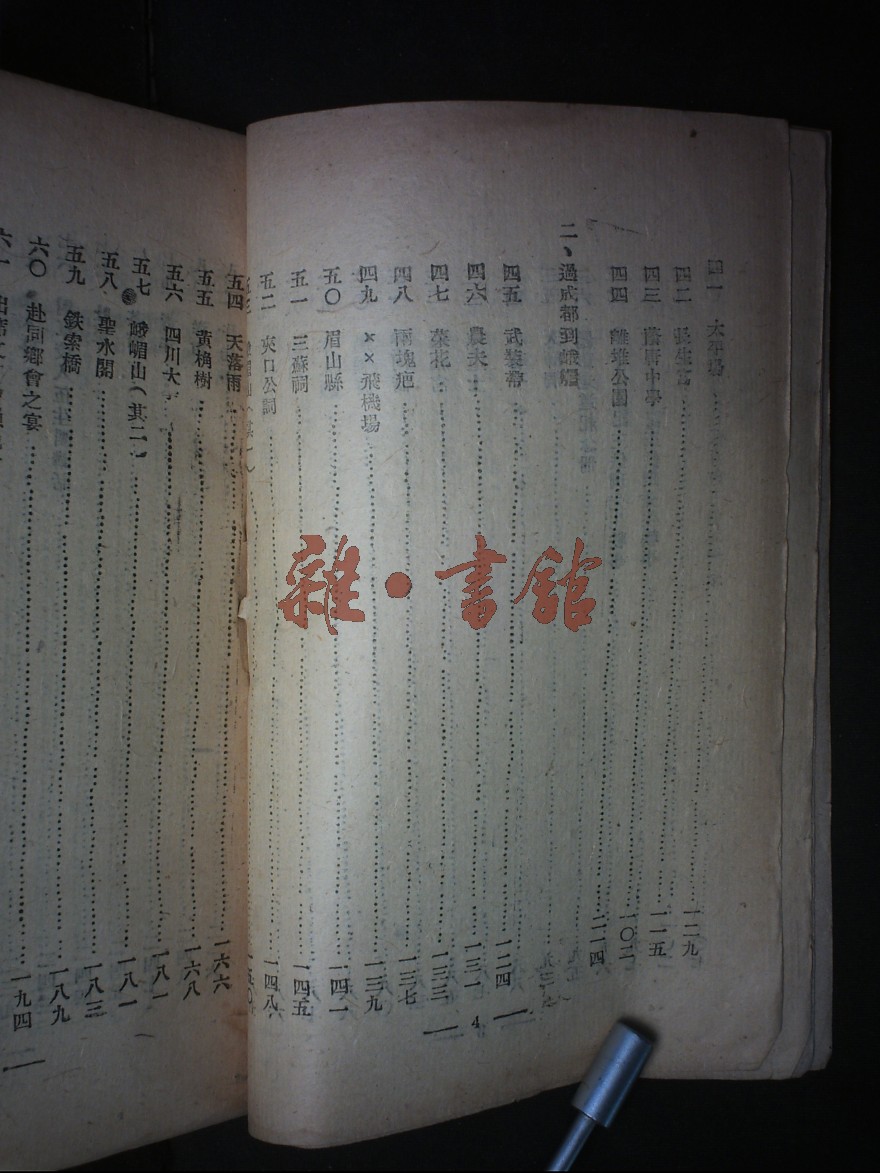 四一 太平場 一二九
四二 長生宮 一一五
四三 蔭唐中學 一〇二
四四 離堆公園
二、過成都到峨嵋
四五 武裝帶 一二四
四六 農夫 一三一
四七 菜花 一三三
四八 兩塊疤 一三七
四九 ××飛機場 一三九
五〇 眉山縣 一四一
五一 三蘇祠 一四五
五二 夾口公詞 一四八
一五〇
五四 天落雨 一六六
五五 黃桷樹 一六八
五六 四川大 一八一
五七 峨嵋山（其二 一八一
五八 聖水閣 一八三
五九 鉄索橋 一八九
六〇 赴同鄉會之宴 一九四
六一 出席文
— 4 —
雜·書舘